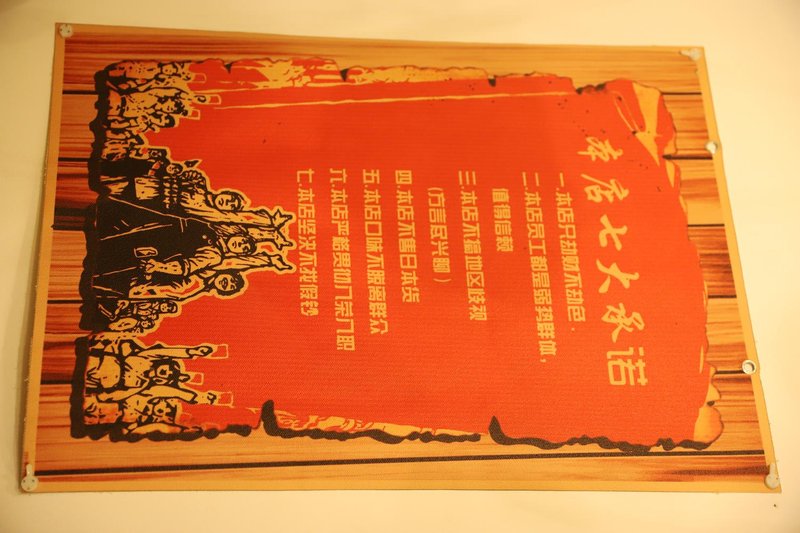 本店七大承诺
一.本店只劫财不劫色.
二.本店员工都是弱势群体,
值得信赖
三.本店不搞地区歧视
(方言尽兴聊)
四.本店不售日本货
五.本店口味不脱离群众
六.本店严格贯彻八荣八耻
七.本店坚决不找假钞